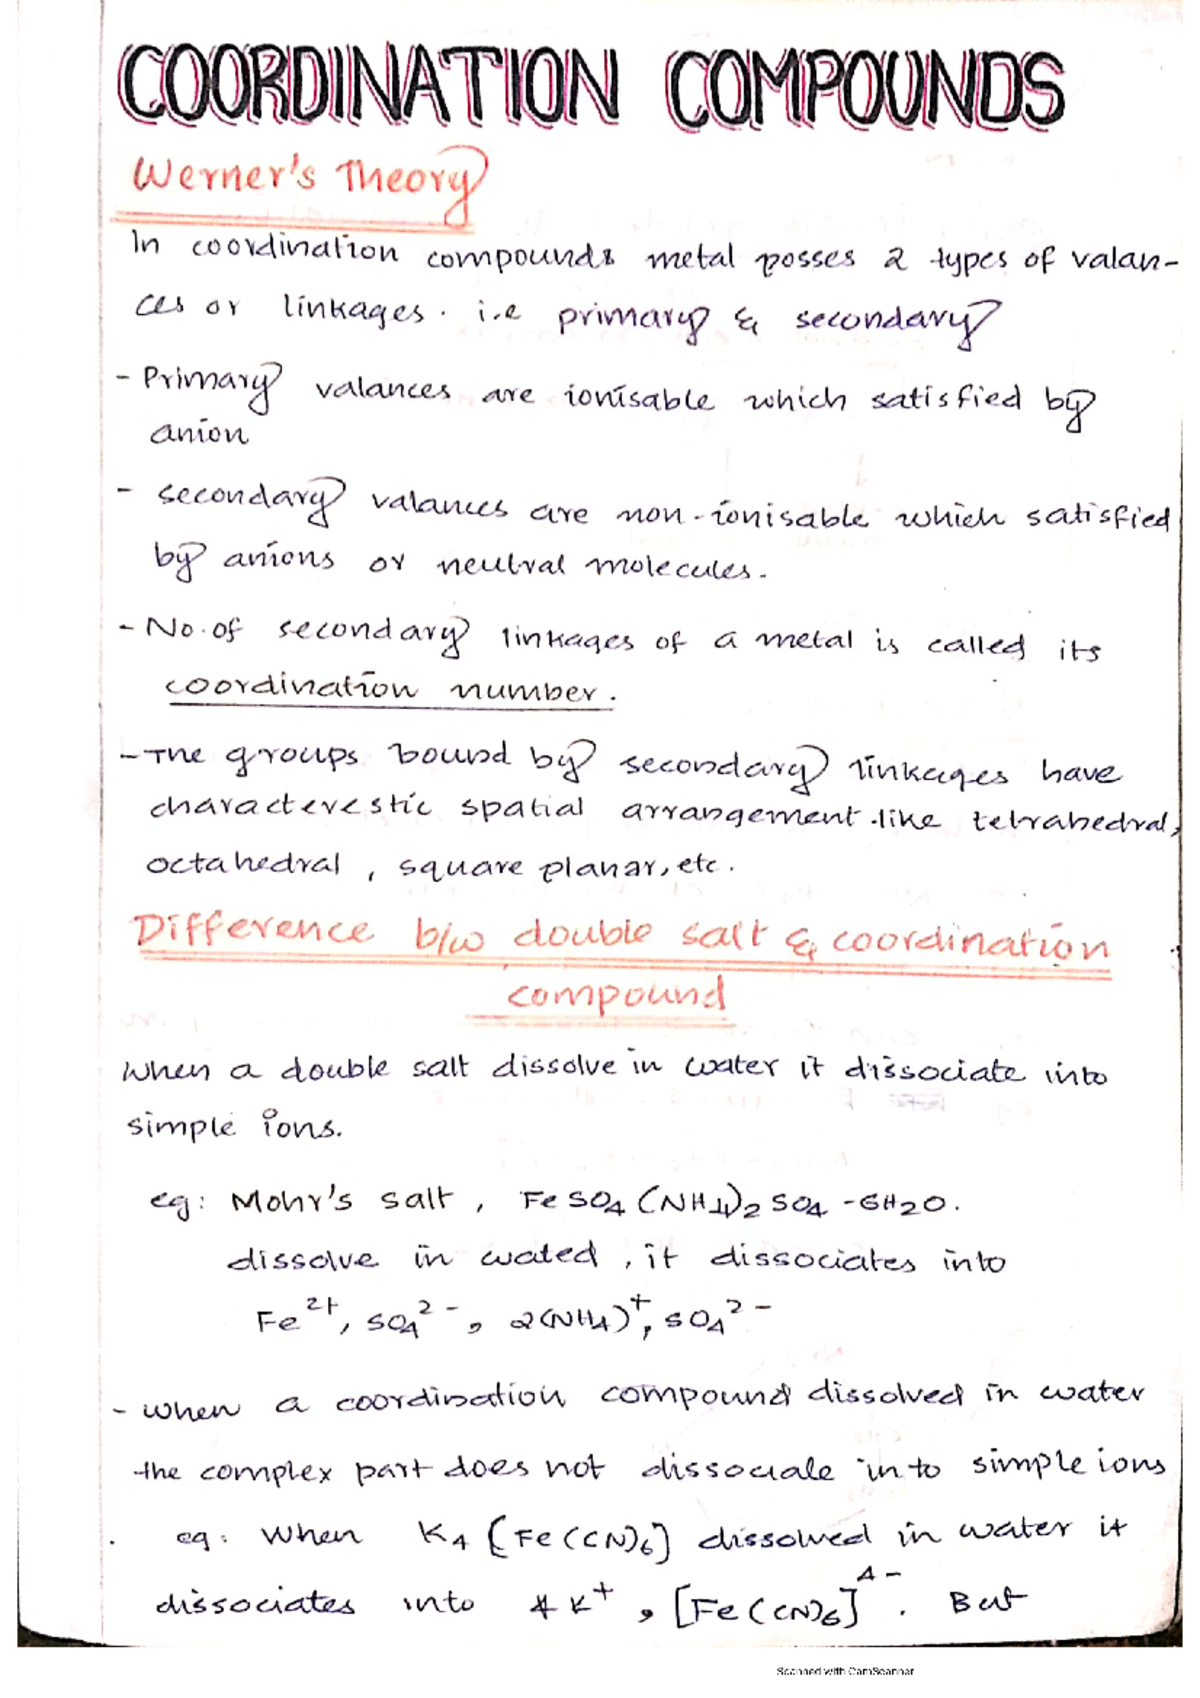 COORDINATION COMPOUNDS
Werner's Theory
In coordination compounds metal posses 2 types of valan-
ces or linkages. i.e primary & secondary
- Primary valances are ionisable which satisfied by
anion
- secondary valances are non-ionisable which satisfied
by anions or neutral molecules.
- No. of secondary linkages of a metal is called its
coordination number.
- The groups bound by secondary linkages have
characterestic spatial arrangement like tetrahedral,
octahedral, square planar, etc.
Difference b/w double salt & coordination
compound
When a double salt dissolve in water it dissociate into
simple ions.
eg: Mohr's salt, FeSO4 (NH4)2 SO4 - 6H2O.
dissolve in wated, it dissociates into
Fe²⁺, SO4²⁻, 2(NH4)⁺, SO4²⁻
- when a coordination compound dissolved in water
the complex part does not dissociate into simple ions
eg: When K4 [Fe(CN)6] dissolved in water it
dissociates into 4K⁺, [Fe(CN)6]⁴⁻. But
Scanned with CamScanner